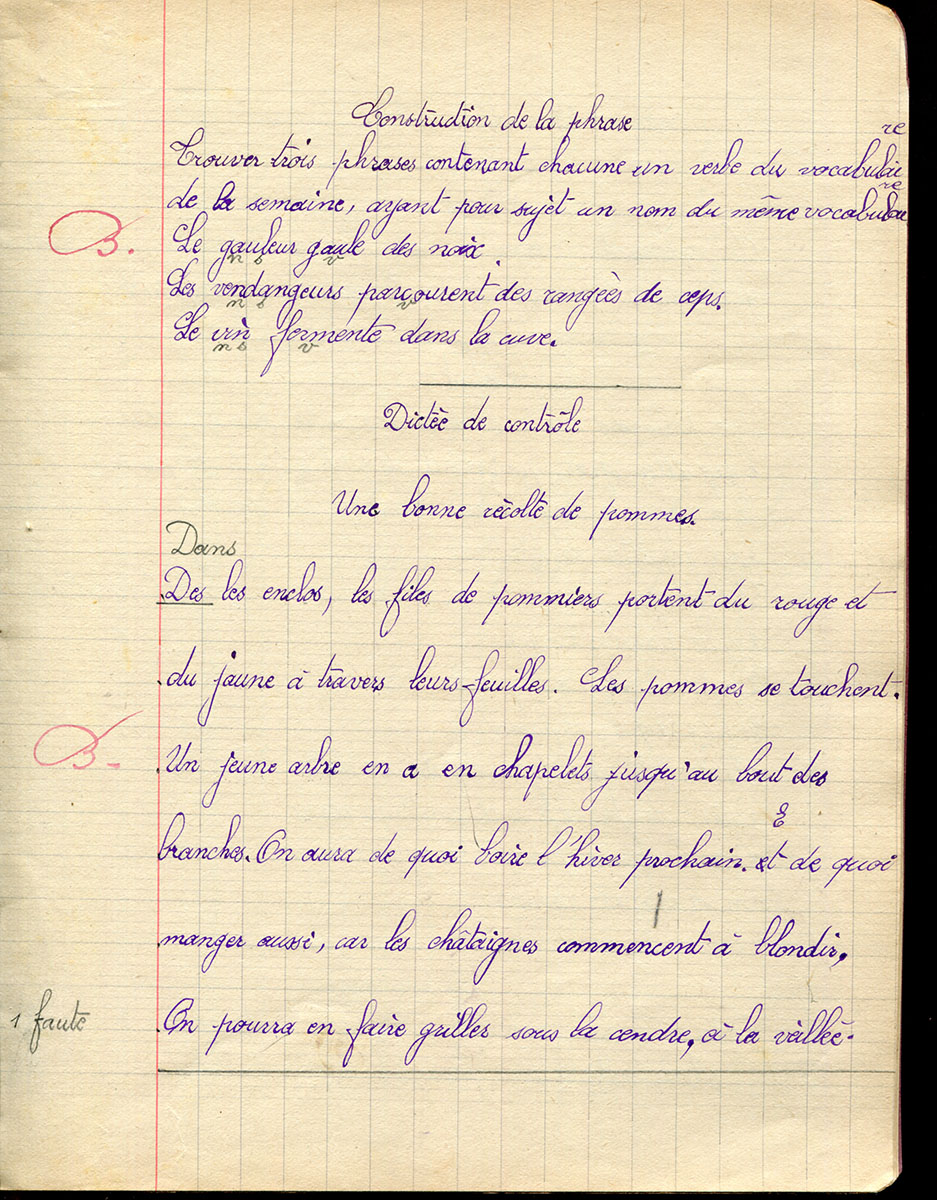 Construction de la phrase
Trouver trois phrases contenant chacune un verbe du vocabulaire
de la semaine, ayant pour sujet un nom du même vocabulaire
B.
Le gauleur gaule des noix.
n s v
Les vendangeurs parcourent des rangées de ceps.
n s v
Le vin fermente dans la cuve.
n s v
Dictée de contrôle
Une bonne récolte de pommes.
Dans
Des les enclos, les files de pommiers portent du rouge et
du jaune à travers leurs feuilles. Les pommes se touchent.
B-
Un jeune arbre en a en chapelets jusqu'au bout des
E
branches. On aura de quoi boire l'hiver prochain. et de quoi
manger aussi, car les châtaignes commencent à blondir.
1 faute
On pourra en faire griller sous la cendre, à la veillée.